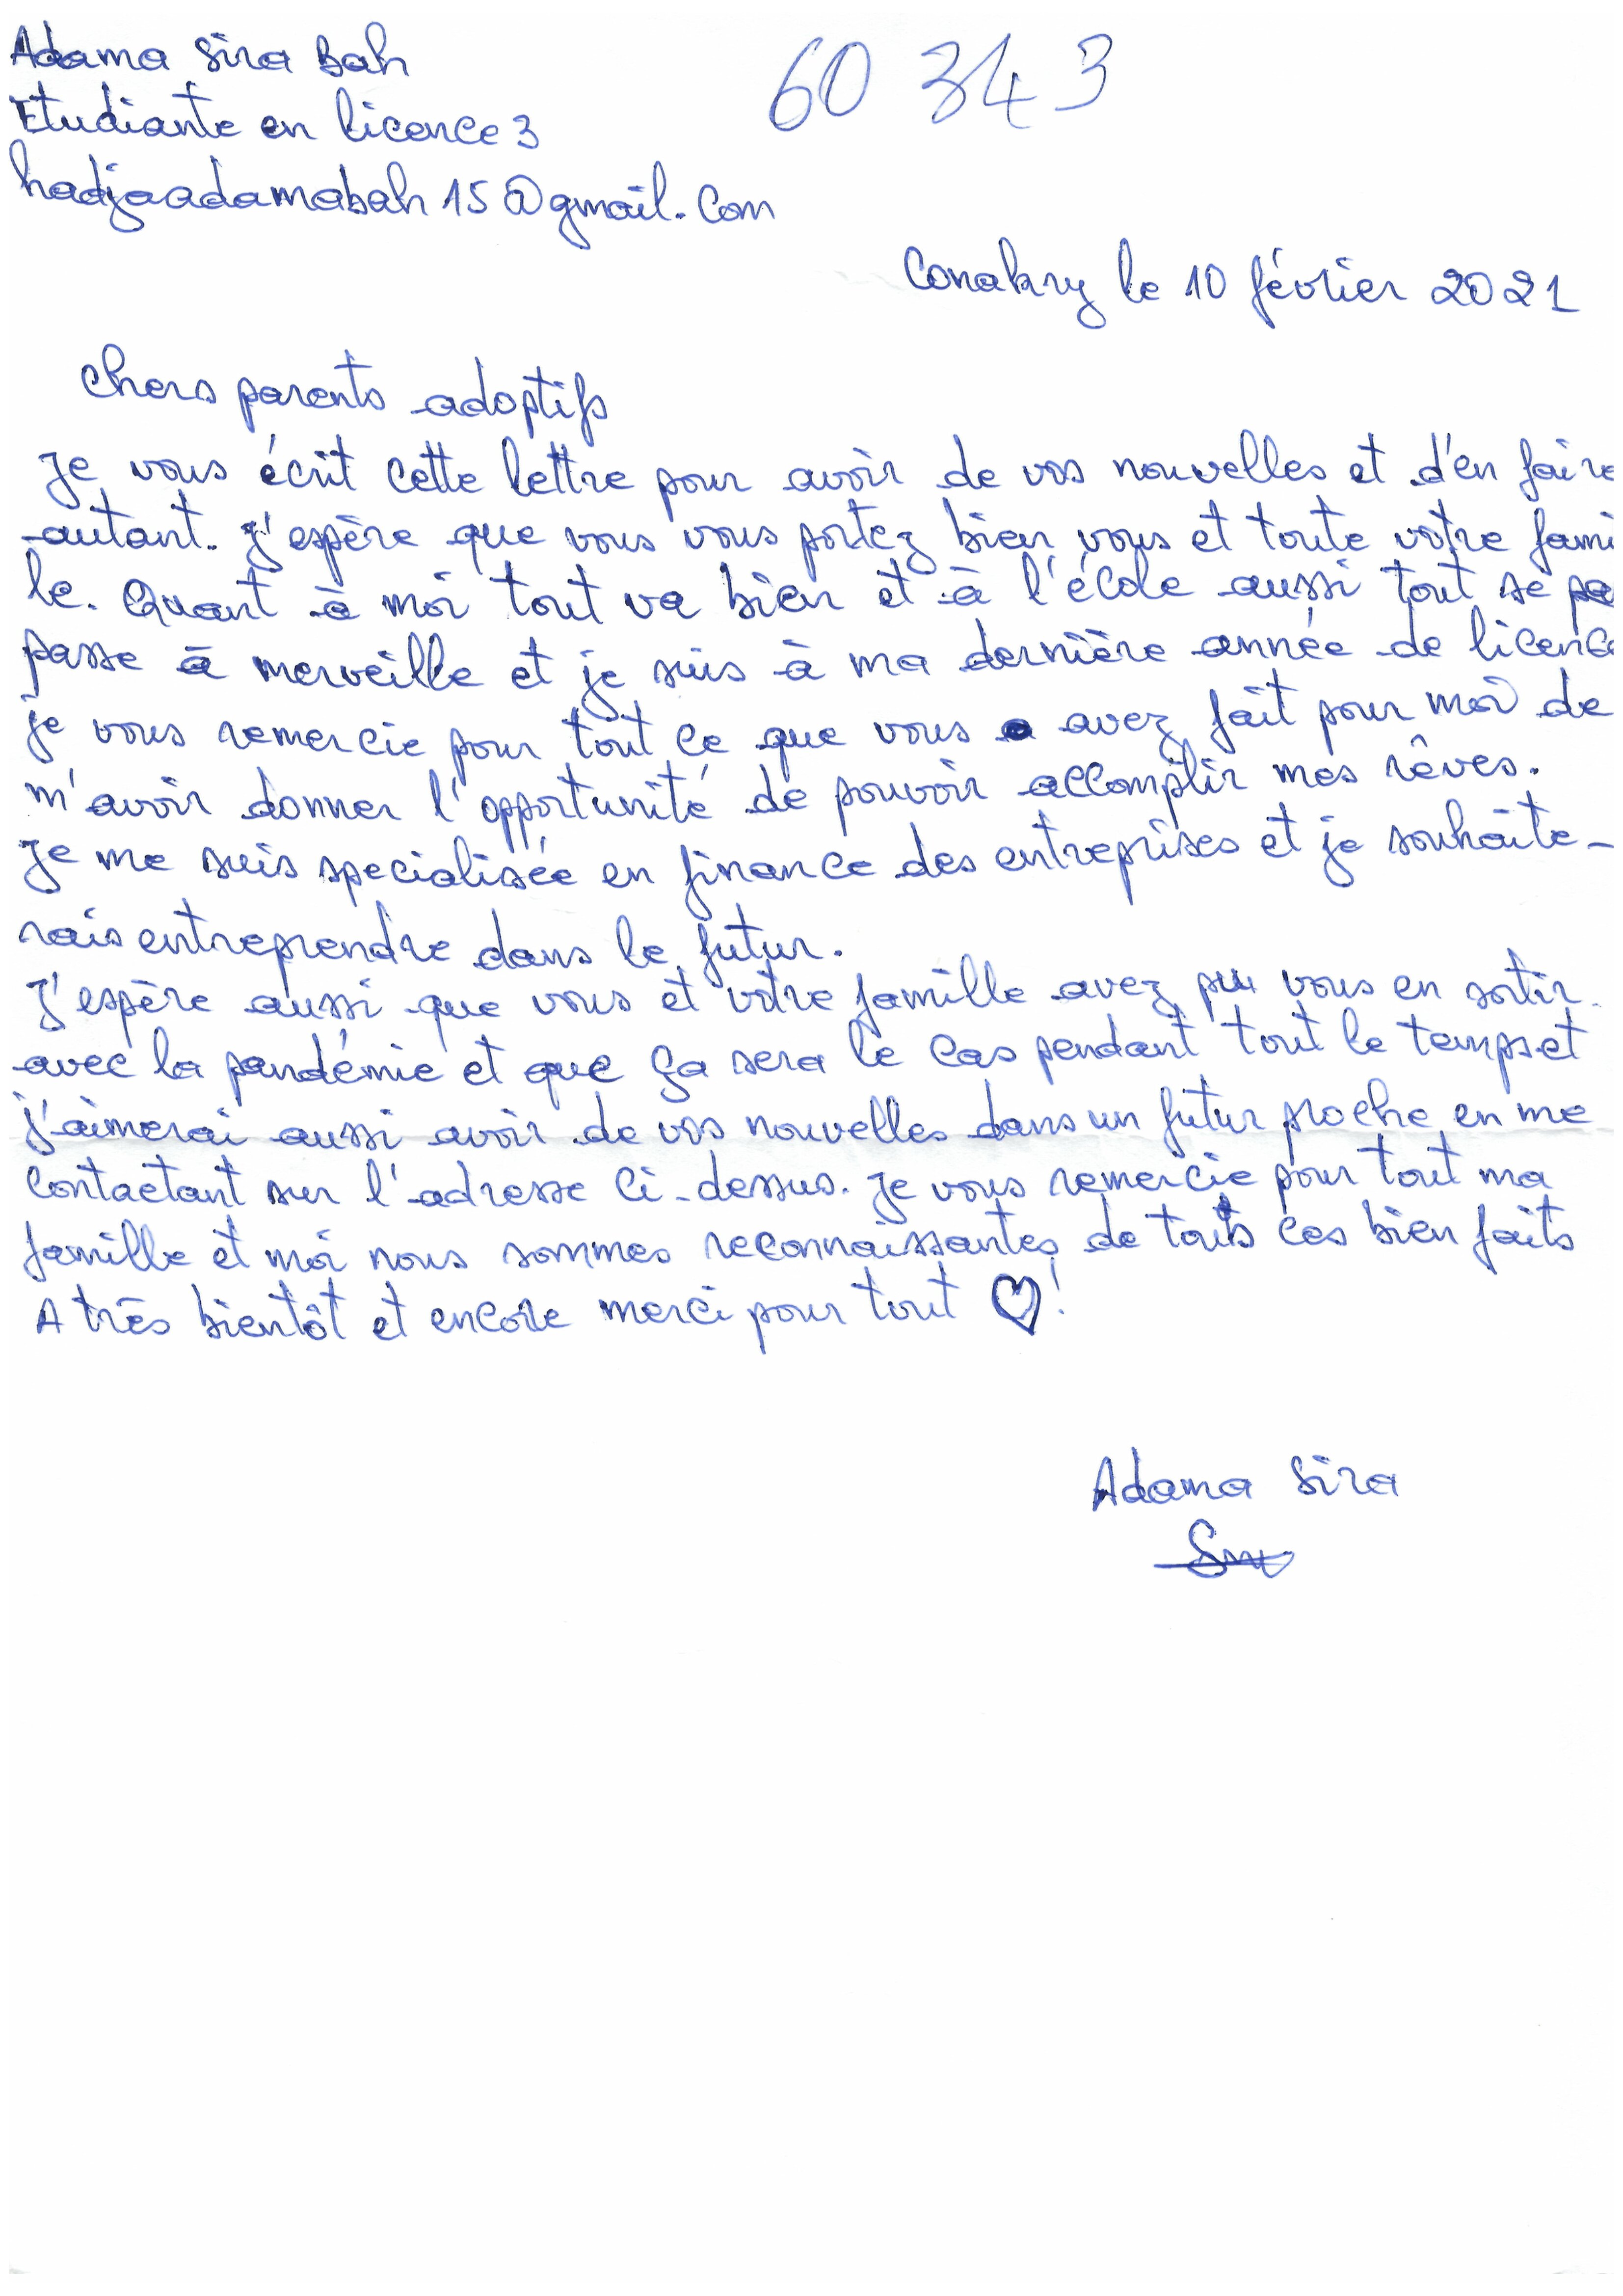 Adama Sira Bah
60 343
Etudiante en licence 3
hadjaadamabah15@gmail.com
Conakry le 10 février 2021
Chers parents adoptifs
Je vous écrit cette lettre pour avoir de vos nouvelles et d'en faire
autant. J'espère que vous vous portez bien vous et toute votre fami
le. Quant à moi tout va bien et à l'école aussi tout se pa
passe à merveille et je suis à ma dernière année de licence
je vous remercie pour tout ce que vous avez fait pour moi de
m'avoir donner l'opportunité de pouvoir accomplir mes rêves.
Je me suis specialisée en finance des entreprises et je souhaite-
rais entreprendre dans le futur.
J'espère aussi que vous et votre famille avez pu vous en sortir
avec la pandémie et que ça sera le cas pendant tout le temps et
j'aimerai aussi avoir de vos nouvelles dans un futur proche en me
contactant sur l'adresse ci-dessus. Je vous remercie pour tout ma
famille et moi nous sommes reconnaissantes de touts ces bien faits
A très bientôt et encore merci pour tout ♡!
Adama Sira